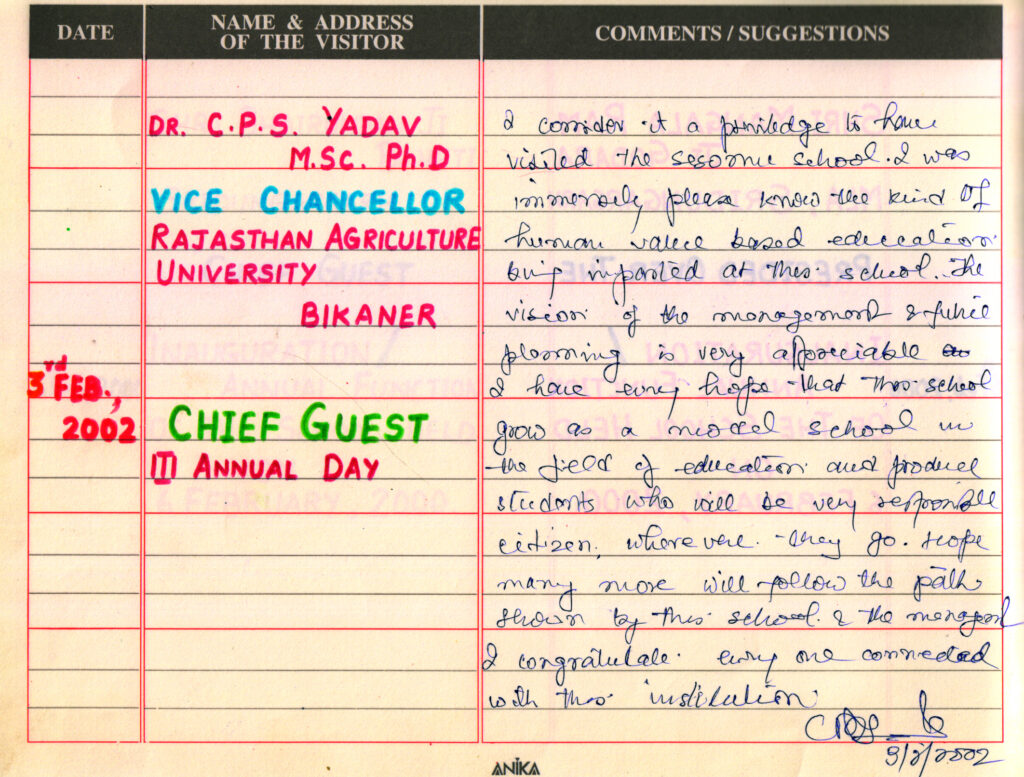 DATE
NAME & ADDRESS
OF THE VISITOR
COMMENTS / SUGGESTIONS
3rd FEB.,
2002
DR. C.P.S. YADAV
M.Sc. Ph.D
VICE CHANCELLOR
RAJASTHAN AGRICULTURE
UNIVERSITY
BIKANER
CHIEF GUEST
III ANNUAL DAY
I consider it a priviledge to have
visited the sesome school. I was
immensely please know the kind of
human value based education
being imparted at this school. The
vision of the management & future
planning is very appreciable
I have every hope that this school
grow as a model school in
the field of education and produce
students who will be very responsible
citizen, where ever they go. Hope
many more will follow the path
shown by this school & the managemt
I congratulate every one connected
with this institution
3/2/2002
ANIKA